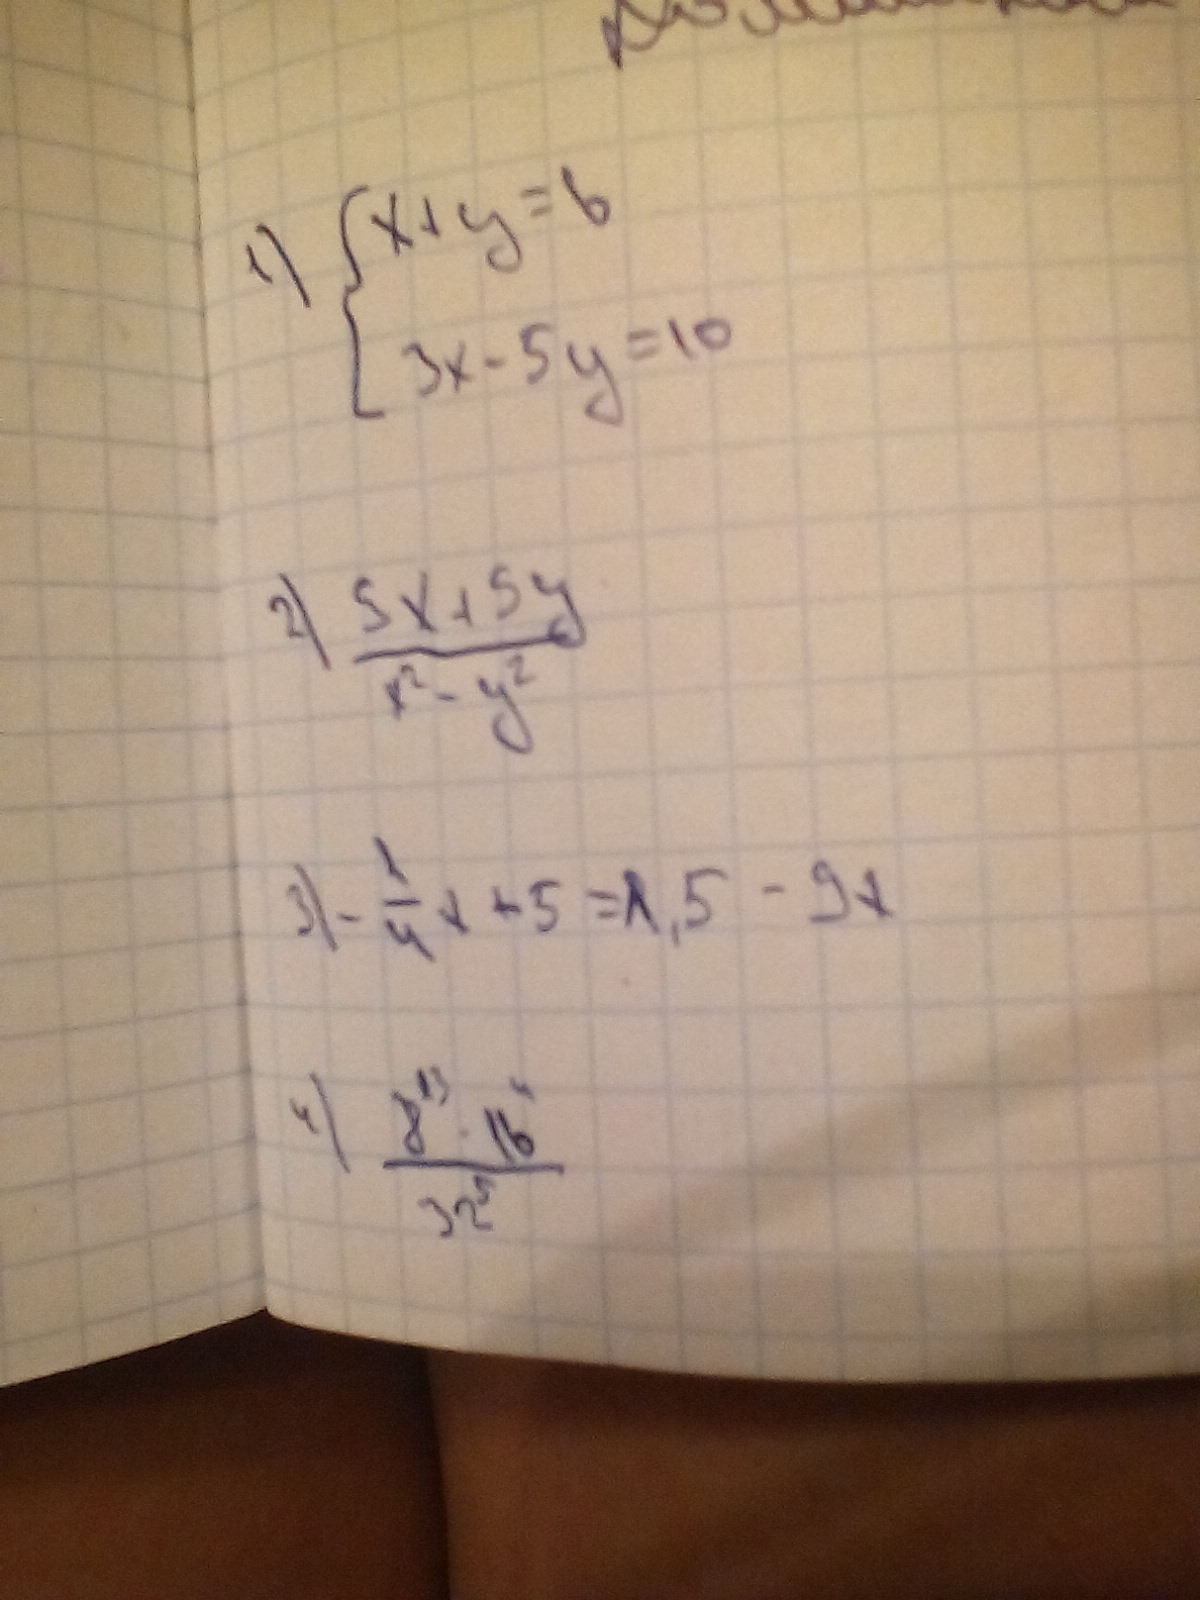 1) { x+y=6
3x-5y=10
2) 5x+5y
x²-y²
3) -1/4 x+5=1,5-9x
4) 8¹³·16
32⁵